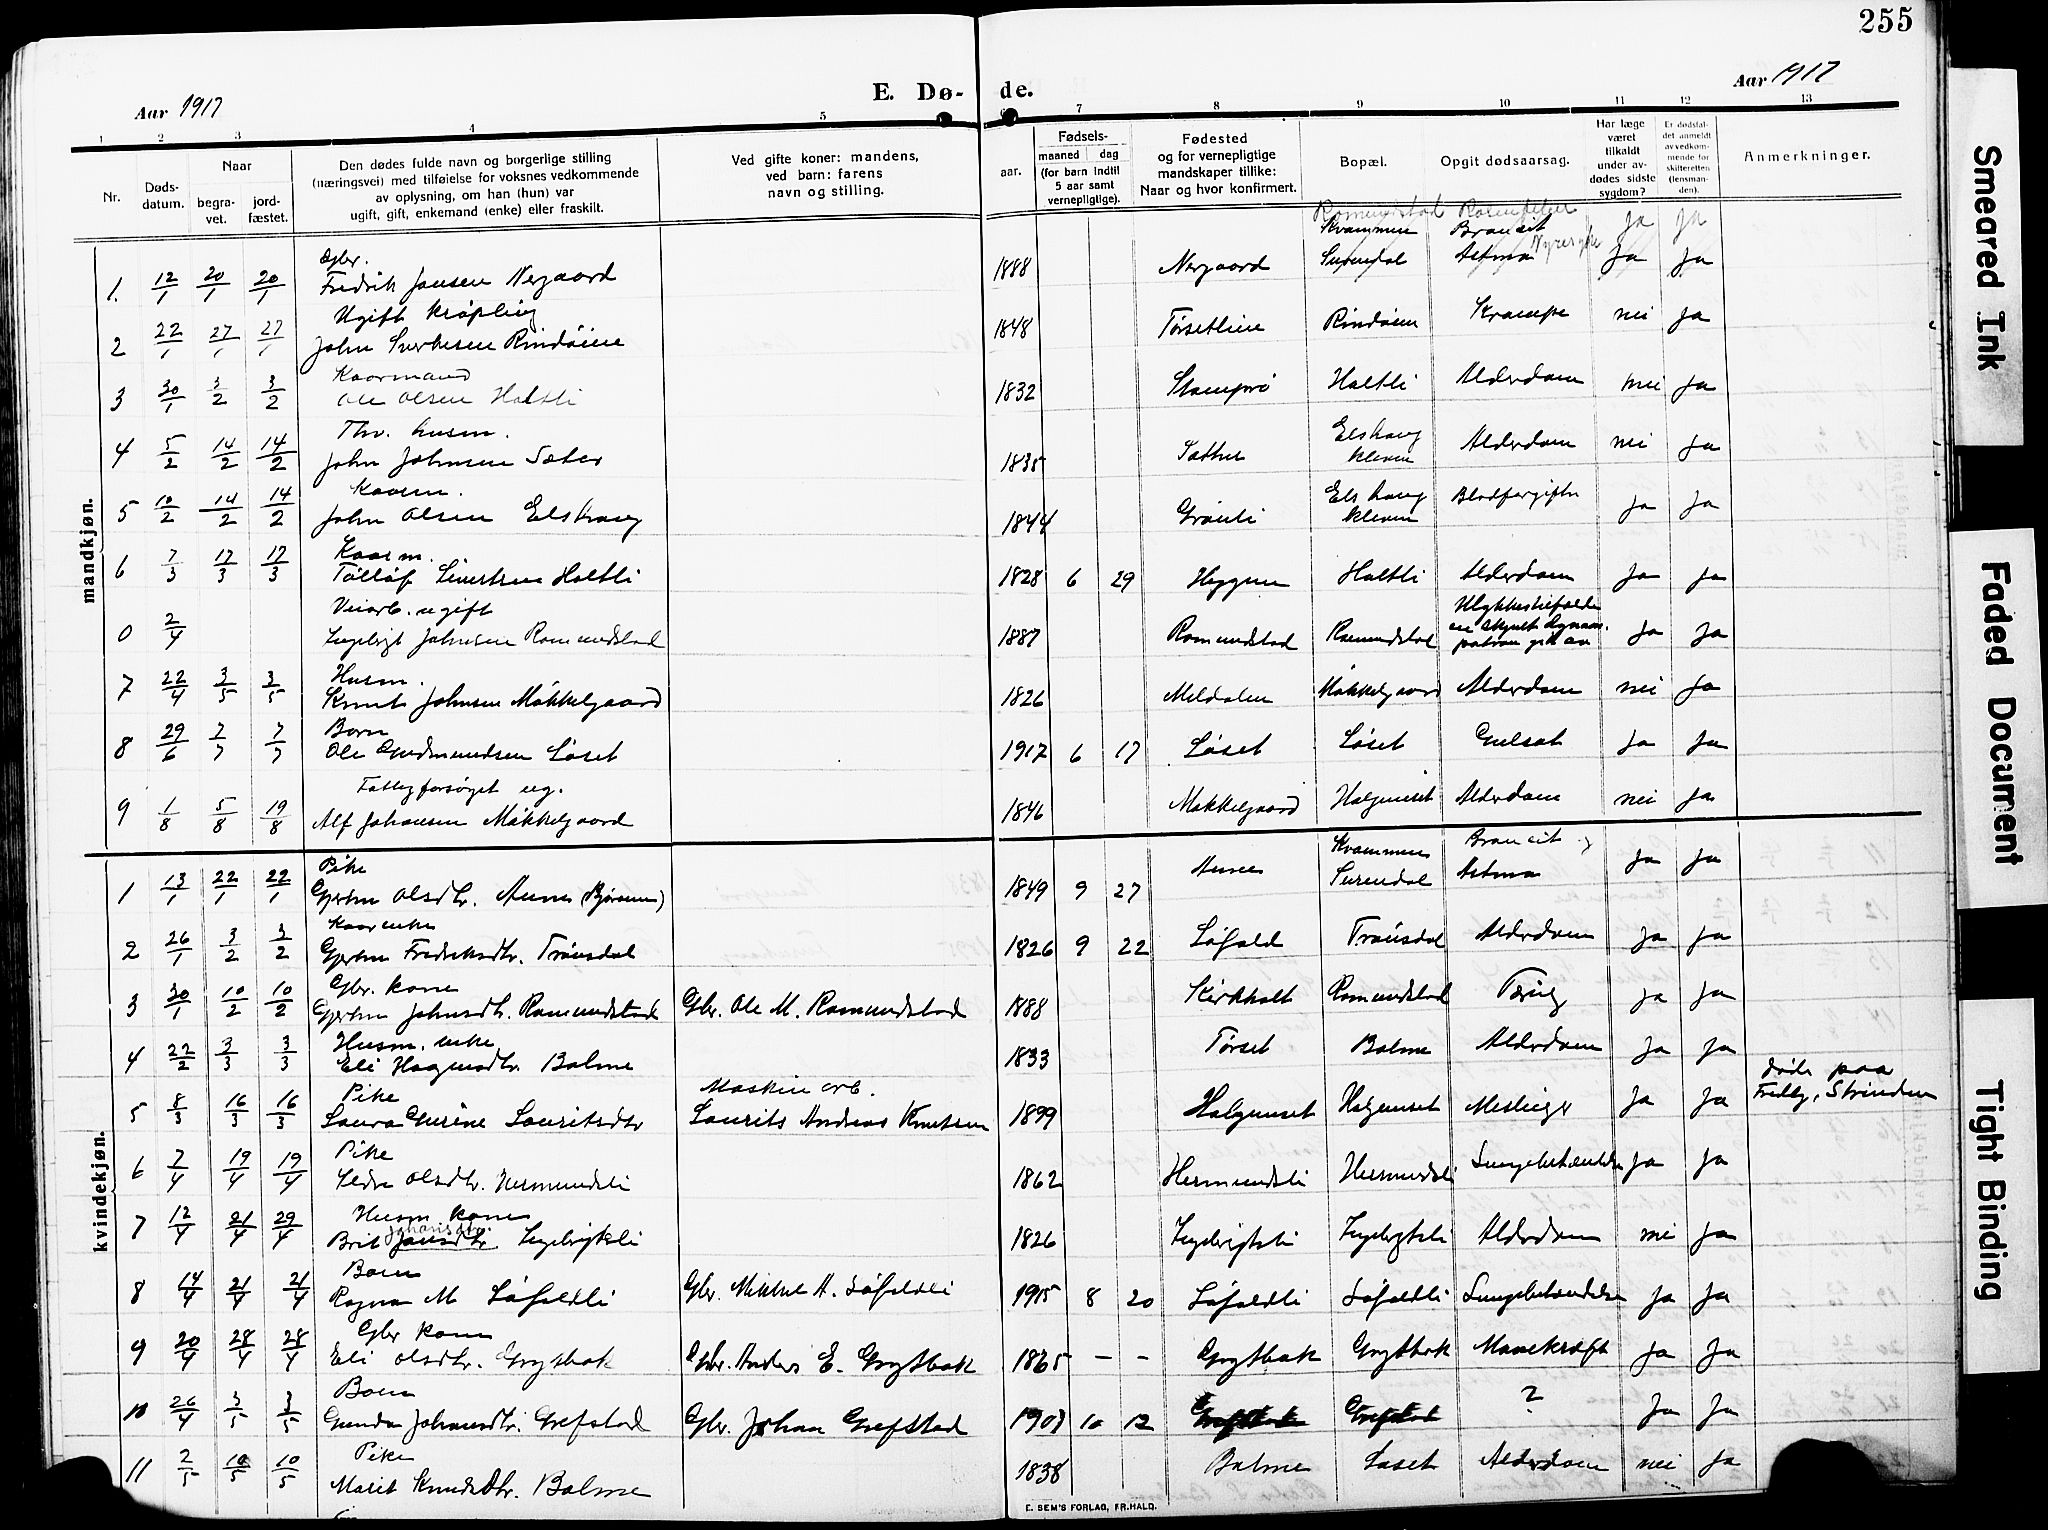 255
Aar 1917
E. Dø-
de.
Aar 1917
1 2 3 4 5 7 8 9 10 11 12 13
Nr.
Døds-
datum.
Naar
begra-
vet.
jord-
fæstet.
Den dødes fulde navn og borgerlige stilling
(næringsvei) med tilføielse for voksnes vedkommende
av oplysning, om han (hun) var
ugift, gift, enkemand (enke) eller fraskilt.
Ved gifte koner: mandens,
ved barn: farens
navn og stilling.
aar.
Fødsels-
maaned dag
(for barn indtil
5 aar samt
vernepligtige).
Fødested
og for vernepligtige
mandskaper tillike:
Naar og hvor konfirmert.
Bopæl.
Opgit dødsaarsag.
Har læge
været
tilkaldt
under av-
dødes sidste
sygdom?
Er dødsfal-
det anmeldt
av vedkom-
mende for
skifteretten
(lensman-
den).
Anmerkninger.
mandkjøn.
Romundstad Ja Ja
Kvammen
Gbr.
1. 12/1 20/1 20/1 Fredrik Jansen Nergaard 1888 Nergaard Surendal Astma Nyresyke Ja Ja
Ugift Krøpling
2 22/1 27/1 27/1 John Sivertsen Rindöien 1848 Törsetlien Rindöien Krampe nei Ja
Kaarmand
3 30/1 3/2 3/2 Ole Olsen Holtli 1832 Holtli Alderdom nei Ja
Thv. husm.
4 5/2 14/2 14/2 John Johnsen Sæter 1835 Sæther Elshaug kleven Alderdom nei Ja
Kaarm.
5 10/2 14/2 14/2 John Olsen Elshaug 1844 Grönli Elshaug kleven Blodforgiftn Ja Ja
Kaarm.
6 7/3 17/3 17/3 Tölløf Sivertsen Holtli 1828 6 29 Heggem Holtli Alderdom Ja Ja
Veiarb. ugift
0 2/4 Ingebrigt Johnsen Romundstad 1887 Romundstad Romundstad Ulykkestilfælde en skjult dynam. patron gik av Ja Ja
Husm.
7 22/4 3/5 3/5 Knut Johnsen Møkkelgaard 1826 Meldalen Møkkelgaard Alderdom nei Ja
Barn
8 29/6 7/7 7/7 Ole Gudmundsen Löset 1917 6 17 Löset Löset Gulsot Ja Ja
Fattigforsörget ug.
9 1/8 5/8 19/8 Alf Johansen Møkkelgaard 1846 Møkkelgaard Halgunset Alderdom nei Ja
kvindekjøn.
Pike
1 13/1 22/1 22/1 Gjertru Olsdtr. Aunes 1849 9 27 Aunes Kvammen Surendal Broncit og Astma Ja Ja
Kaarenke
2 26/1 3/2 3/2 Gjertru Fredriksdtr. Trönsdal 1826 9 22 Löfald Trönsdal Alderdom Ja Ja
Gbr. kone
3 30/1 10/2 10/2 Gjertru Johnsdtr. Romundstad Gbr. Ole M. Romundstad 1888 Kirkholt Romundstad Tæring Ja Ja
Husm. enke
4 22/2 3/3 3/3 Eli Hagensdtr. Bolme 1833 Törset Bolme Alderdom Ja Ja
Pike Maskin arb.
5 8/3 16/3 16/3 Laura Gurine Lauritsdtr Laurits Andreas Knutsen 1899 Halgunset Halgunset Meslinger Ja Ja döde paa Fredly, Strinden
Pike
6 7/4 19/4 19/4 Olsdtr. Hermundsli 1862 Hermundsli Hermundsli Lungebetændelse Ja Ja
Husm kone
7 12/4 21/4 29/4 Brit Johansdtr Jansdtr Ingebrigtsli 1826 Ingebrigtsli Ingebrigtsli Alderdom nei Ja
Barn
8 14/4 21/4 21/4 Ragna M Löfaldli Gbr. Mikkel A. Löfaldli 1915 8 20 Löfaldli Löfaldli Lungebetændelse Ja Ja
Gbr kone
9 20/4 28/4 28/4 Eli Olsdtr. Grytbak Gbr. Anders E. Grytbak 1865 – – Grytbak Grytbak Mavekræft Ja Ja
Barn
10 26/4 3/5 3/5 Gunda Johansdtr. Grefstad Gbr. Johan Grefstad 1907 10 12 Grefstad Grefstad ? Ja Ja
Pike
11 2/5 10/5 10/5 Marit Knudsdtr. Bolme 1838 Bolme Löset Alderdom nei Ja
E. SEM'S FORLAG, FR.HALD.
Smeared Ink
Faded Document
Tight Binding